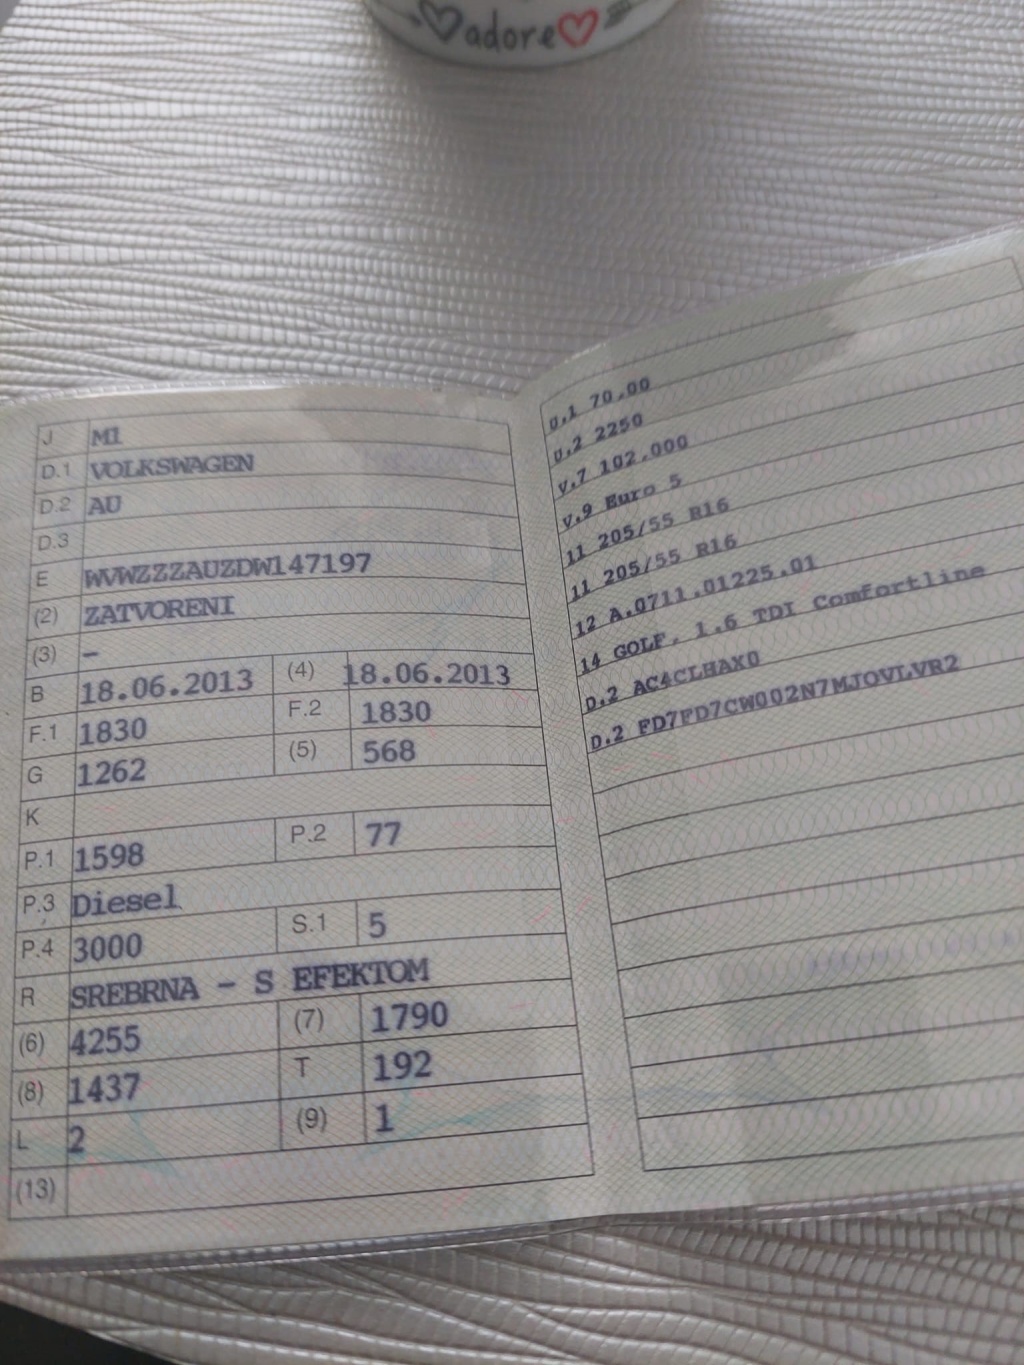 adore
J M1
D.1 VOLKSWAGEN
D.2 AU
D.3
E WVWZZZAUZDW147197
(2) ZATVORENI
(3) –
B 18.06.2013 (4) 18.06.2013
F.1 1830 F.2 1830
G 1262 (5) 568
K
P.1 1598 P.2 77
P.3 Diesel
P.4 3000 S.1 5
R SREBRNA - S EFEKTOM
(6) 4255 (7) 1790
(8) 1437 T 192
L 2 (9) 1
(13)
U.1 70,00
U.2 2250
V.7 102,000
V.9 Euro 5
11 205/55 R16
11 205/55 R16
12 A.0711.01225.01
14 GOLF, 1.6 TDI Comfortline
D.2 AC4CLHAX0
D.2 FD7FD7CW002N7MJOVLVR2